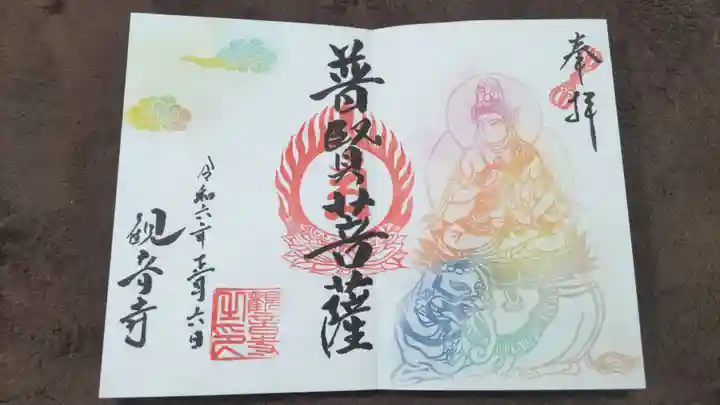 奉拝
普賢菩薩
令和六年正月六日
観音寺